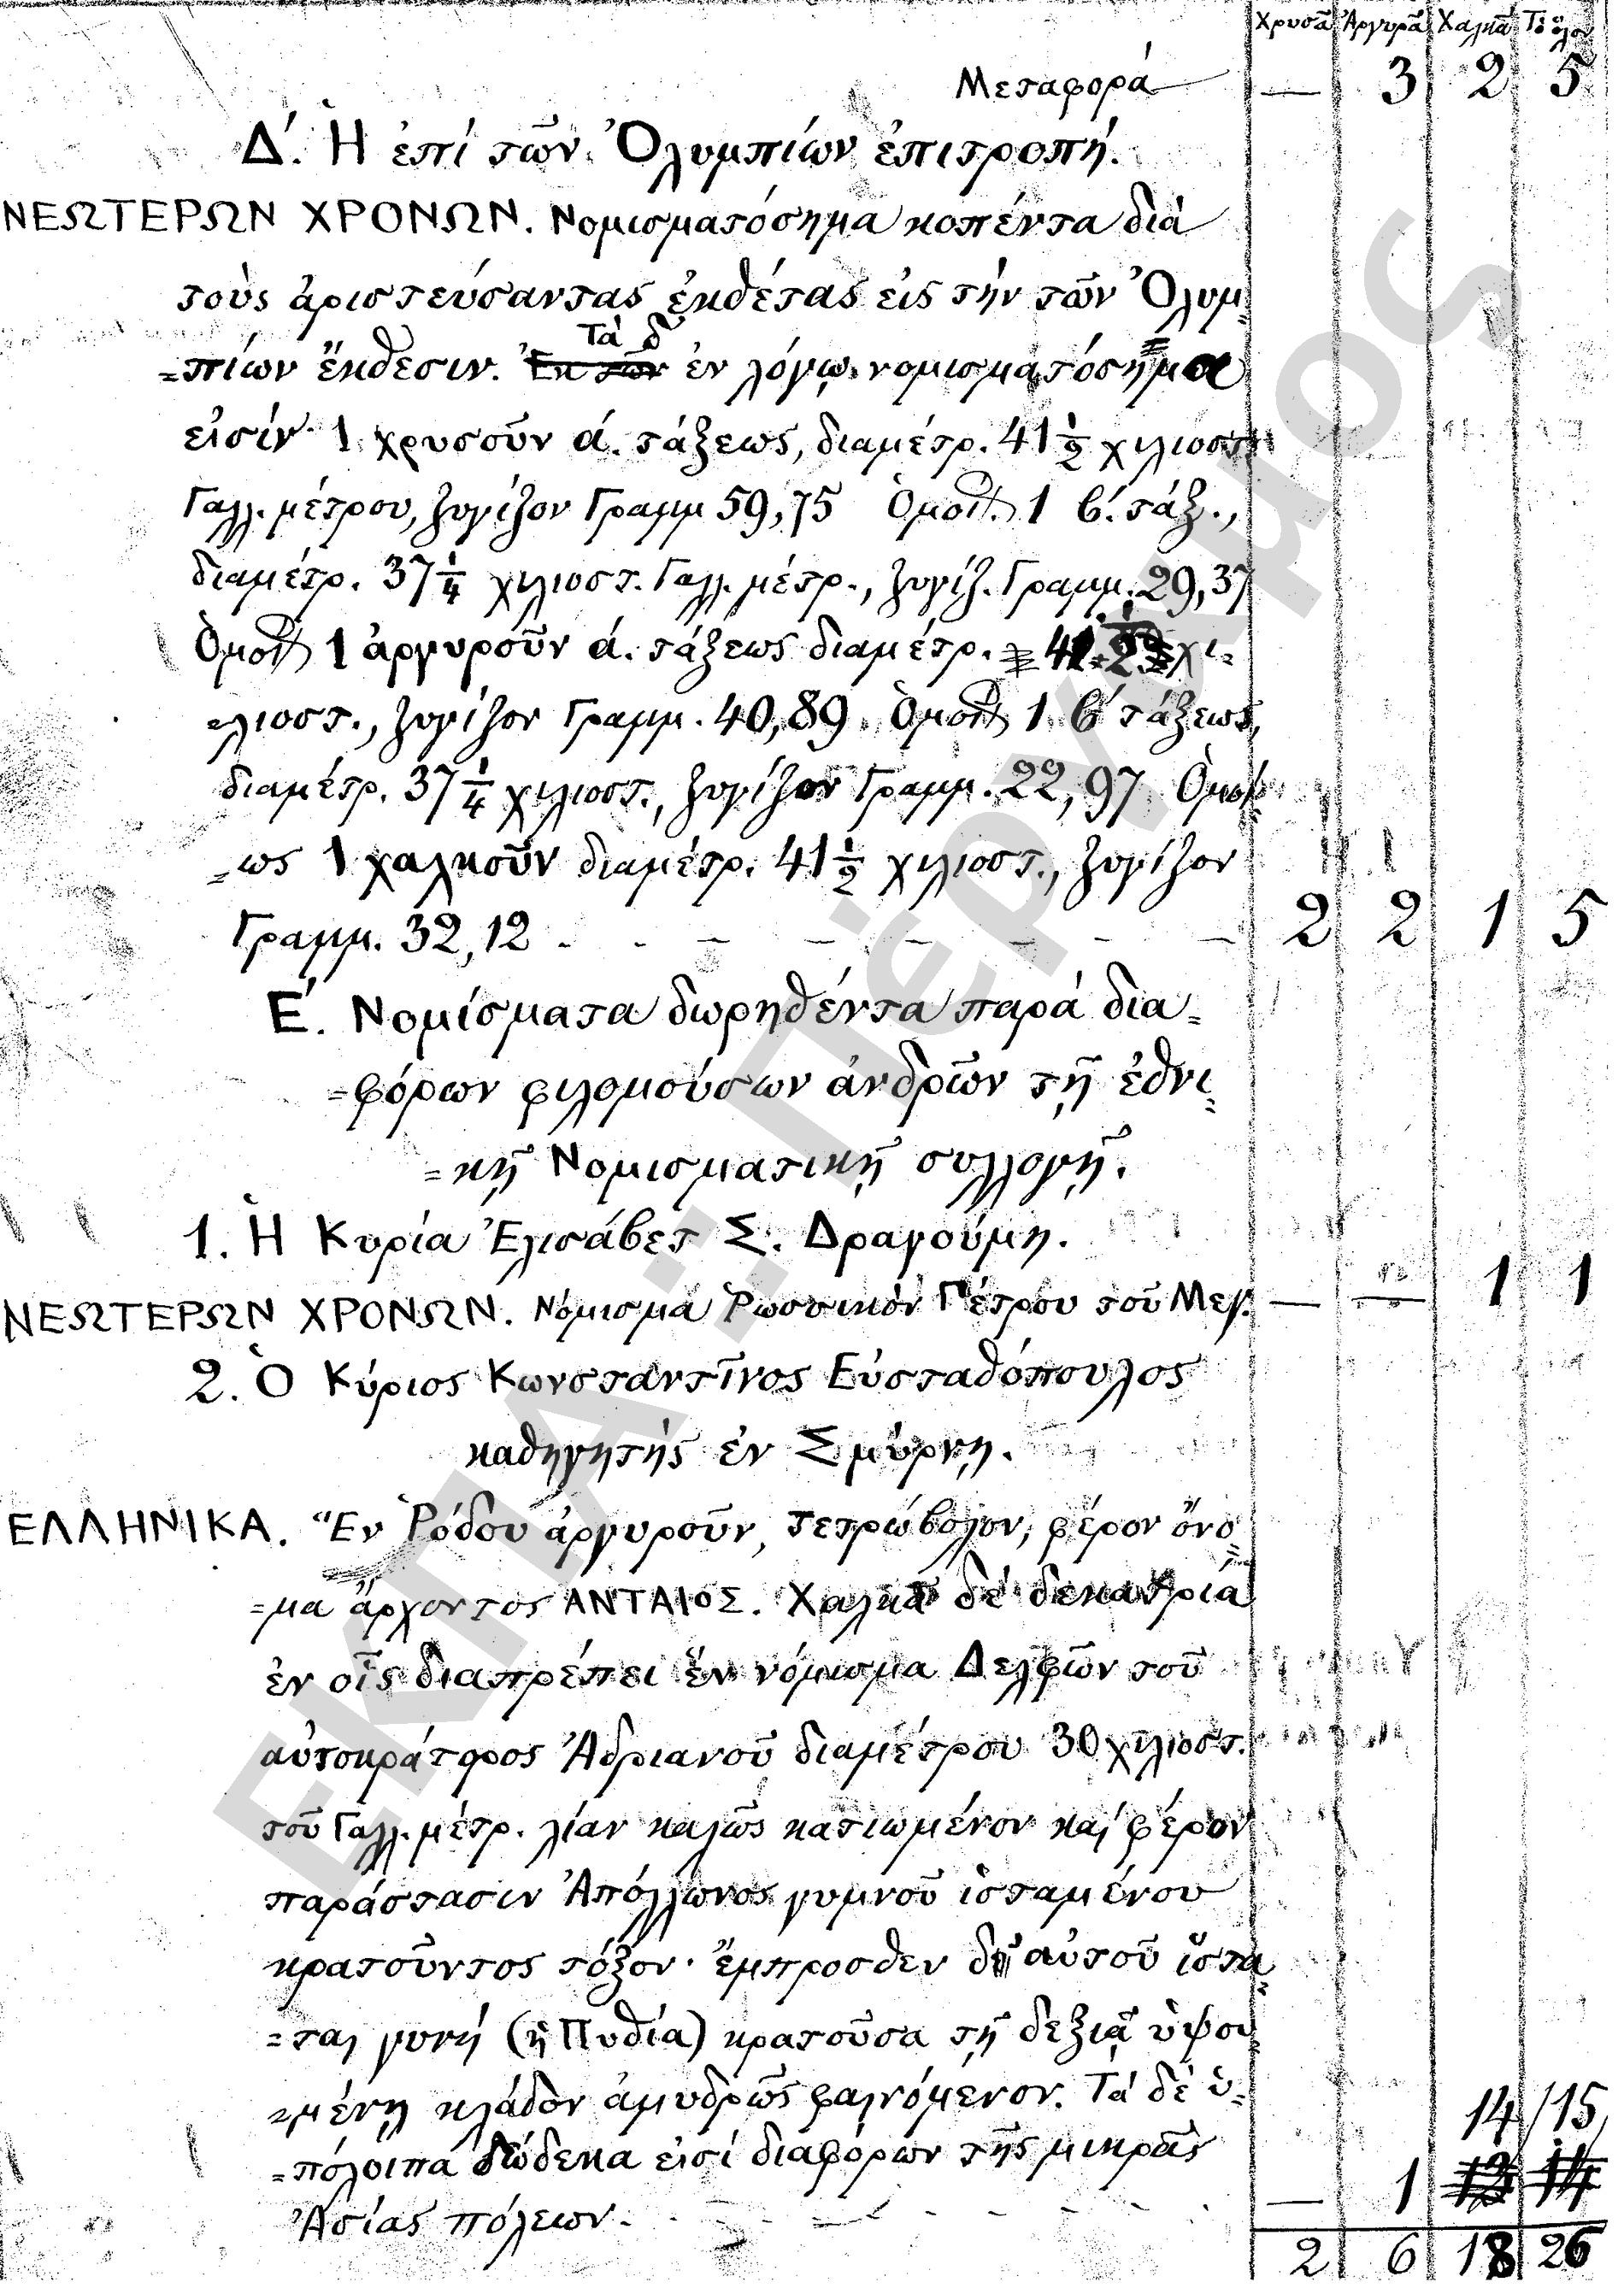 Χρυσᾶ Ἀργυρᾶ Χαλκᾶ Τὸ ὅλον
Μεταφορά — 3 2 5
Δ΄. Ἡ ἐπί τῶν Ὀλυμπίων ἐπιτροπή.
ΝΕΩΤΕΡΩΝ ΧΡΟΝΩΝ. Νομισματόσημα κοπέντα διὰ
τοὺς ἀριστεύσαντας ἐκθέτας εἰς τὴν τῶν Ὀλυμ=
=πίων ἔκθεσιν. Τὰ δ' ἐν λόγῳ νομισματόσημα
εἰσίν· 1 χρυσοῦν ά. τάξεως, διαμέτρ. 41 1/2 χιλιοστ.
Γαλλ. μέτρου, ζυγίζον Γραμμ 59,75 Ὁμοίως 1 β΄. τάξ.,
διαμέτρ. 37 1/4 χιλιοστ. Γαλλ. μέτρ., ζυγίζ. Γραμμ. 29,37
Ὁμοίως 1 ἀργυροῦν ά. τάξεως διαμέτρ. 41 1/2 χι=
=λιοστ., ζυγίζον Γραμμ. 40,89. Ὁμοίως 1 β΄ τάξεως,
διαμέτρ. 37 1/4 χιλιοστ., ζυγίζον Γραμμ. 22,97 Ὁμοί=
=ως 1 χαλκοῦν διαμέτρ. 41 1/2 χιλιοστ., ζυγίζον
Γραμμ. 32,12 - - - - - - - - 2 2 1 5
Ε΄. Νομίσματα δωρηθέντα παρά δια=
=φόρων φιλομούσων ἀνδρῶν τῇ ἐθνι=
=κῇ Νομισματικῇ συλλογῇ.
1. Ἡ Κυρία Ἐλισάβετ Σ. Δραγούμη.
ΝΕΩΤΕΡΩΝ ΧΡΟΝΩΝ. Νόμισμα Ῥωσσικὸν Πέτρου τοῦ Μεγ. — — 1 1
2. Ὁ Κύριος Κωνσταντῖνος Εὐσταθόπουλος
καθηγητής ἐν Σμύρνῃ.
ΕΛΛΗΝΙΚΑ. Ἓν Ῥόδου ἀργυροῦν, τετρώβολον, φέρον ὄνο=
=μα ἄρχοντος ΑΝΤΑΙΟΣ. Χαλκᾶ δὲ δεκατρία
ἐν οἷς διαπρέπει ἓν νόμισμα Δελφῶν τοῦ
αὐτοκράτορος Ἀδριανοῦ διαμέτρου 30 χιλιοστ.
τοῦ Γαλλ. μέτρ. λίαν καλῶς κατιωμένον καὶ φέρον
παράστασιν Ἀπόλλωνος γυμνοῦ ἱσταμένου
κρατοῦντος τόξον· ἔμπροσθεν δὲ αὐτοῦ ἵστα=
=ται γυνή (ἡ Πυθία) κρατοῦσα τῇ δεξιᾷ ὑψου
=μένῃ κλάδον ἀμυδρῶς φαινόμενον. Τά δὲ ὑ=
14/15
=πόλοιπα δώδεκα εἰσί διαφόρων τῆς μικρᾶς
— 1 13 14
Ἀσίας πόλεων. - - - - - - -
2 6 18 26
ΕΚΠΑ - Πέργαμος